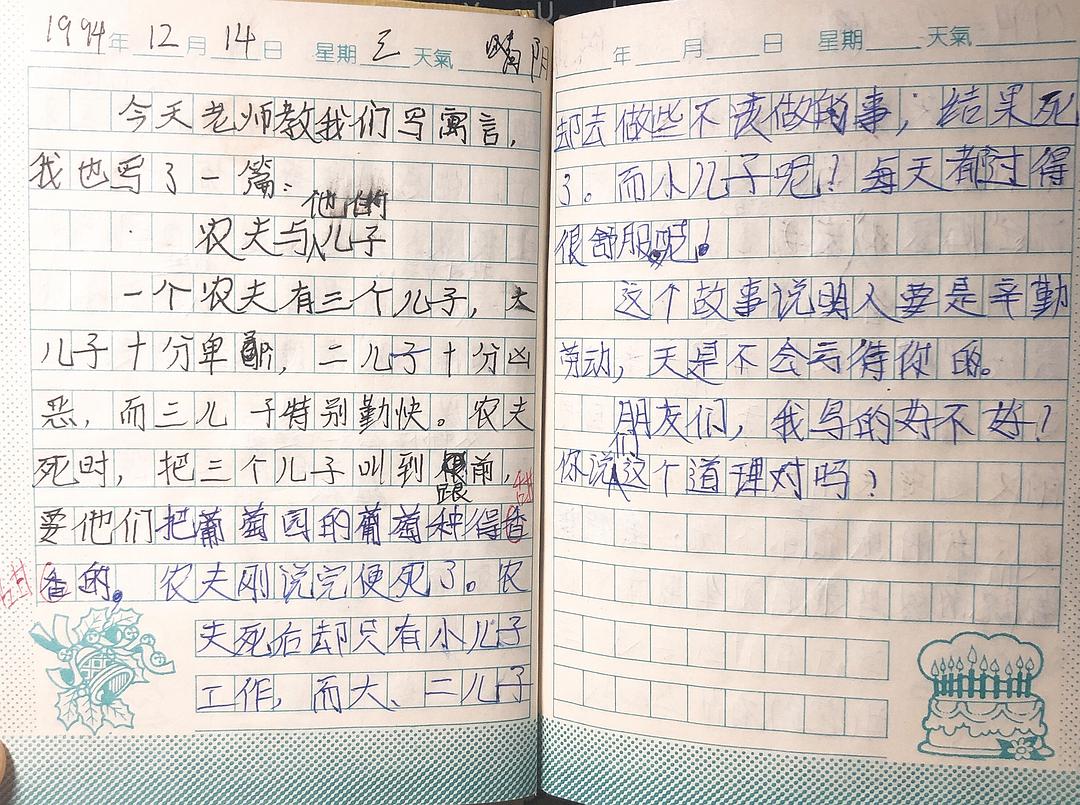 1994年 12月 14日 星期三 天氣 晴阴
今天老师教我们写寓言，
我也写了一篇：
他们的
农夫与儿子
一个农夫有三个儿子，大
儿子十分卑鄙，二儿子十分凶
恶，而三儿子特别勤快。农夫
死时，把三个儿子叫到跟前，
要他们把葡萄园的葡萄种得香
甜
甜
香的。农夫刚说完便死了。农
夫死后却只有小儿子
工作，而大、二儿子
年 月 日 星期 天氣
却去做些不该做的事，结果死
了。而小儿子呢？每天都过得
很舒服呢！
这个故事说明人要是辛勤
劳动，天是不会亏待你的。
朋友们，我写的好不好？
们
你说这个道理对吗？